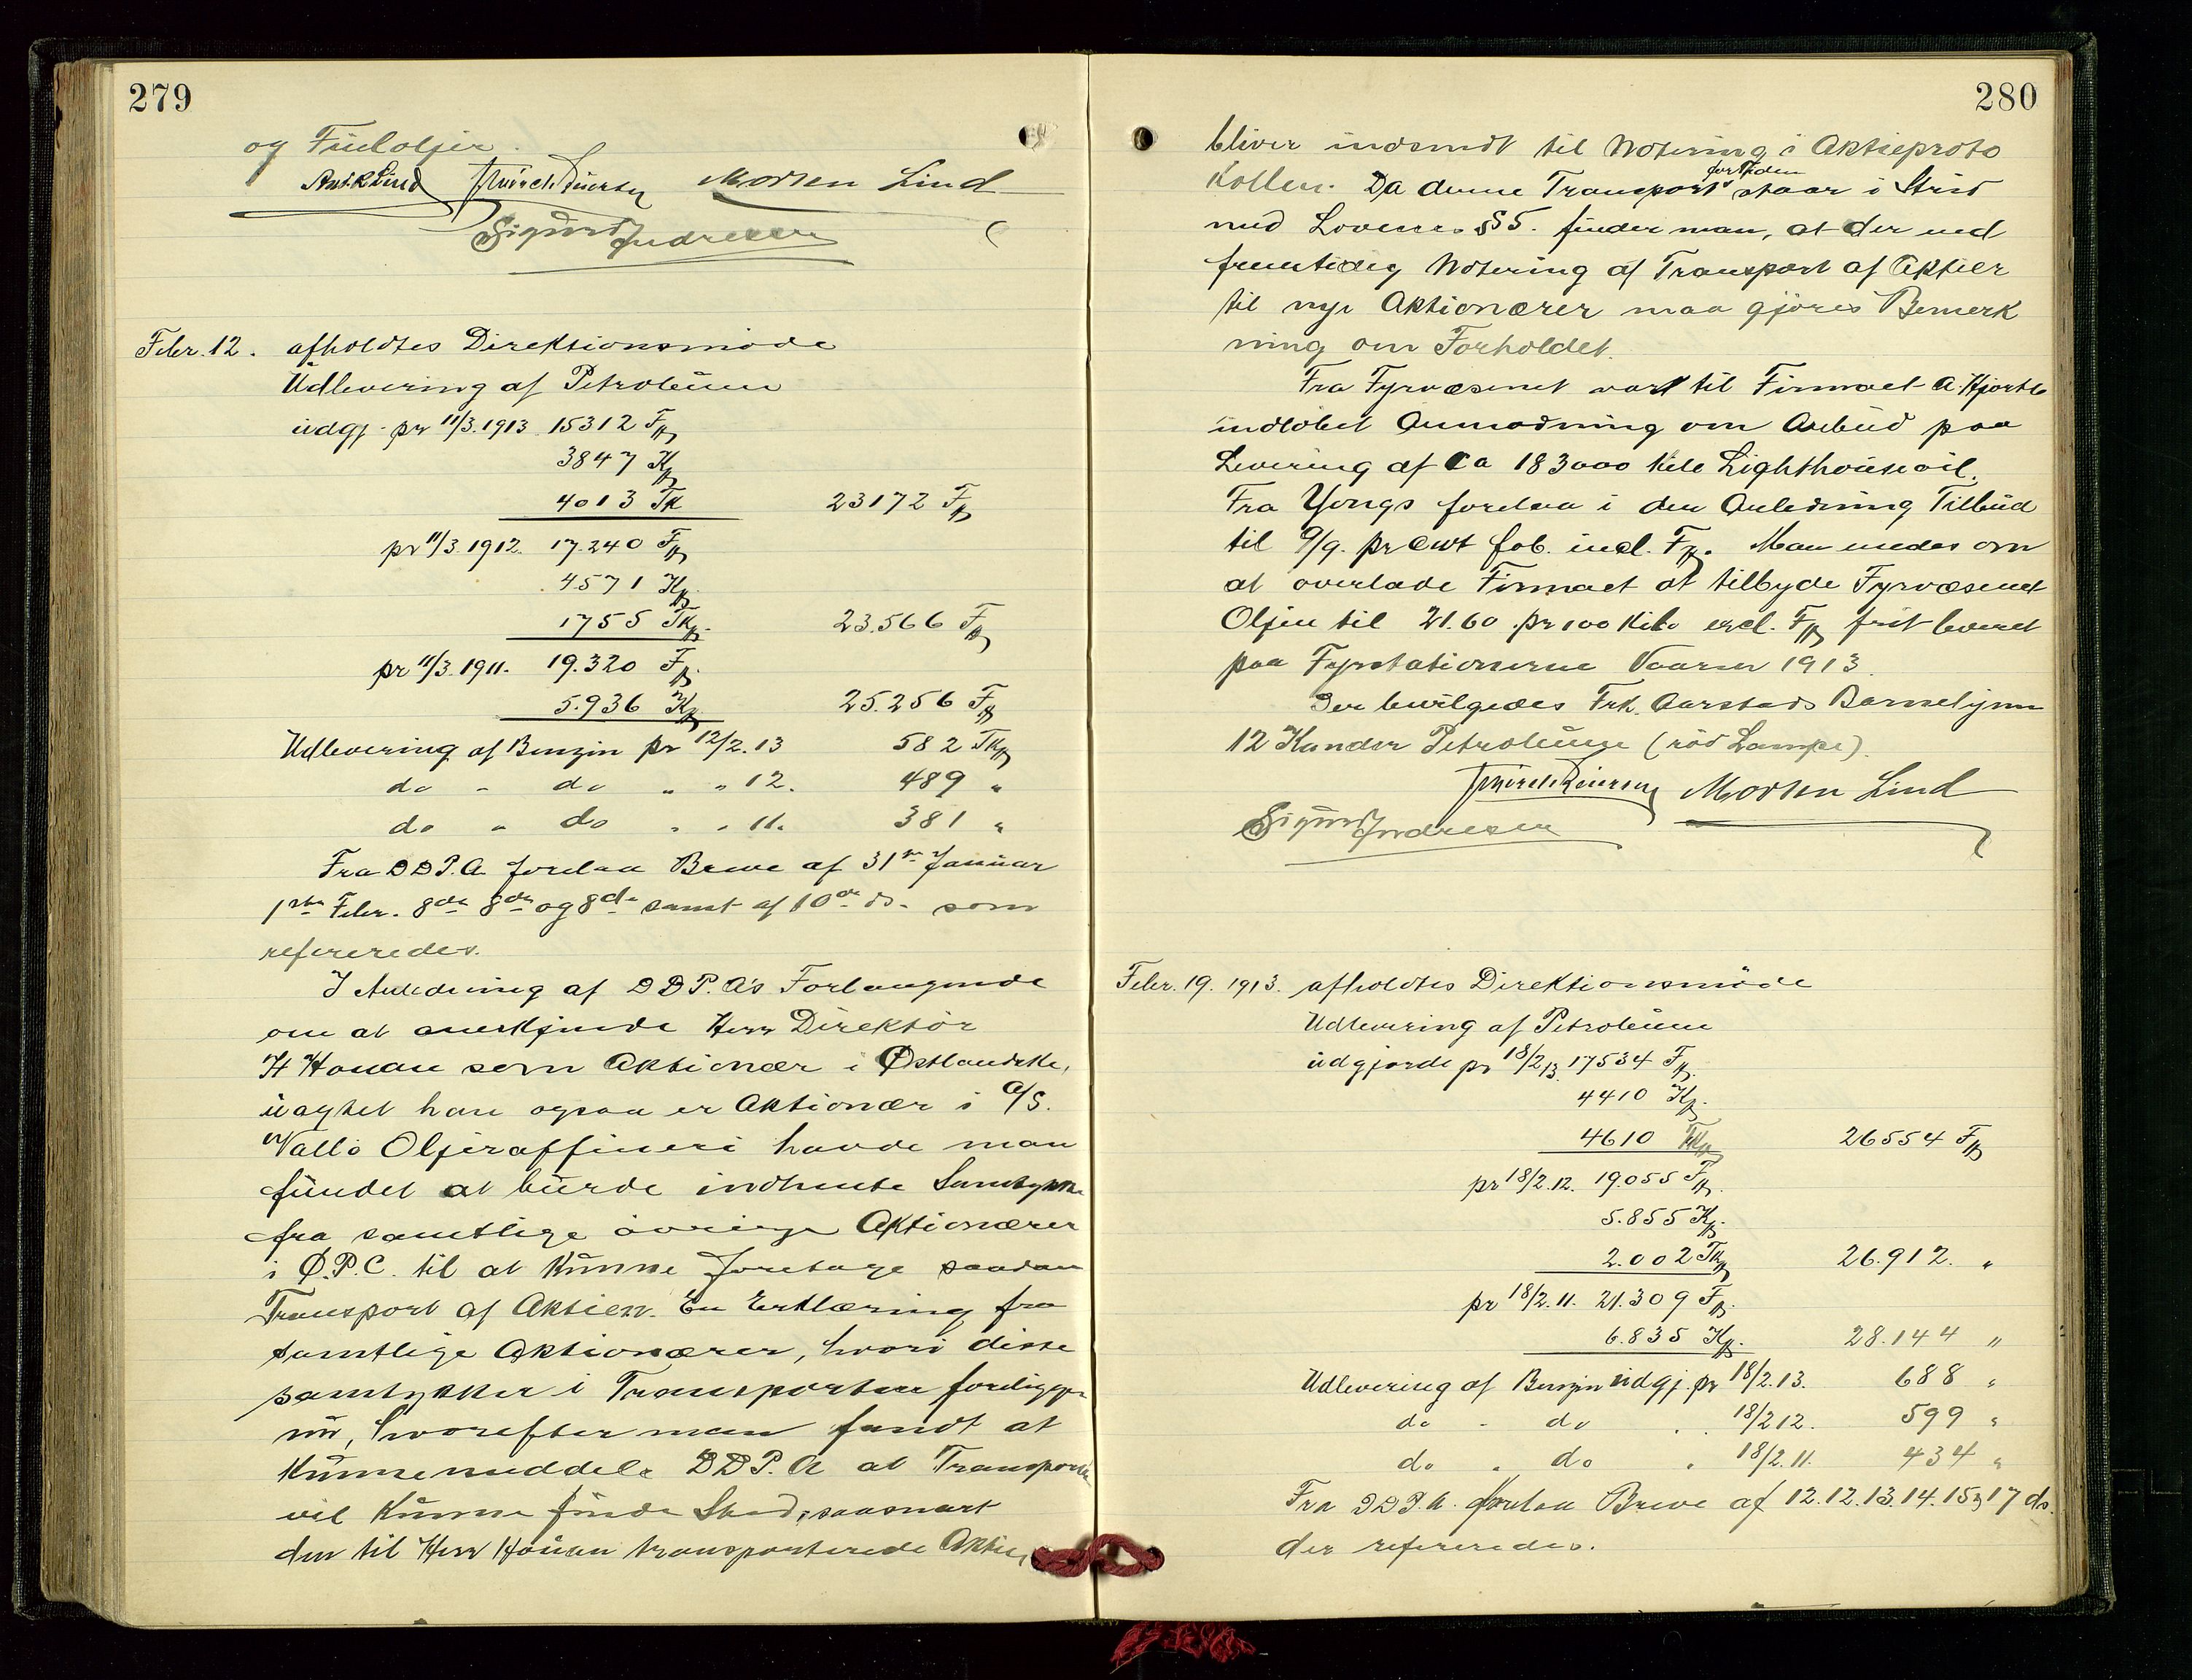 279
og Fueloljer.
Morten Lind
Sigurd Indresen
Febr. 12. afholdtes Direktionsmøde
Udlevering af Petroleum
udgj. pr 11/3. 1913 15312 Fp
3847 Kp
4013 Tk 23172 Fp
pr 11/3. 1912. 17.240 Fp
4571 Kp
1755 Tkp. 23.566 Fp
pr 11/3. 1911. 19.320 Fp.
5.936 Kp 25.256 Fp
Udlevering af Benzin pr 12/2. 13 582 Tkp
do " do " " 12. 489 "
do " do " " 11. 381 "
Fra DDPA. forelaa Breve af 31te Januar
1ste Febr. 8de 8de og 8de samt af 10de ds. som
refereredes.
I Anledning af DDP.A's Forlangende
om at anerkjende Herr Direktør
H Houan som Aktionær i Østlandske,
uagtet han ogsaa er Aktionær i A/S.
Vallø Oljeraffineri havde man
fundet at burde indhente Samtykke
fra samtlige øvrige Aktionærer
i Ø.P.C. til at kunne foretage saadan
Transport af Aktien. En Erklæring fra
samtlige Aktionærer, hvori disse
samtykker i Transporten foreligger
nu, hvorefter man fandt at
kunne meddele DDP.A at Transporten
vil kunne finde Sted, saasnart
den til Herr Houan transporterede Aktie
280
bliver indsendt til Notering i Aktieproto
kollen. Da denne Transport for Tiden staar i Strid
med Lovenes §5. finder man, at der ved
fremtidig Notering af Transport af Aktier
til nye Aktionærer maa gjøres Bemerk
ning om Forholdet.
Fra Fyrvæsenet var til Firmaet A. Hjorth
indløbet Anmodning om Anbud paa
Levering af ca 183000 kilo Lighthouseoil.
Fra Yongs forelaa i den Anledning Tilbud
til 9/9. pr cwt fob. incl. Fp. Man enedes om
at overlade Firmaet at tilbyde Fyrvæsenet
Oljen til 21.60 pr 100 Kilo excl. Fp frit leveret
paa Fyrstationerne Vaaren 1913.
Der bevilgedes Frk. Aarstads Barnehjem
12 Kander Petroleum (rød Lampe).
Morten Lind
Sigurd Indresen
Febr. 19. 1913. afholdtes Direktionsmøde
Udlevering af Petroleum
udgjorde pr 18/2 13. 17534 Fp.
4410 Kp.
4610 Tkp 26554 Fp
pr 18/2. 12. 19.055 Fp.
5.855 Kp.
2.002 Tkp 26.912. "
pr 18/2. 11. 21.309 Fp.
6.835 Kp. 28.144 "
Udlevering af Benzin udgj. pr 18/2. 13. 688 "
do " do " " 18/2 12. 599 "
do " do " 18/2. 11. 434 "
Fra DDP.A. forelaa Breve af 12. 12. 13. 14. 15 og 17 ds.
der refereredes.